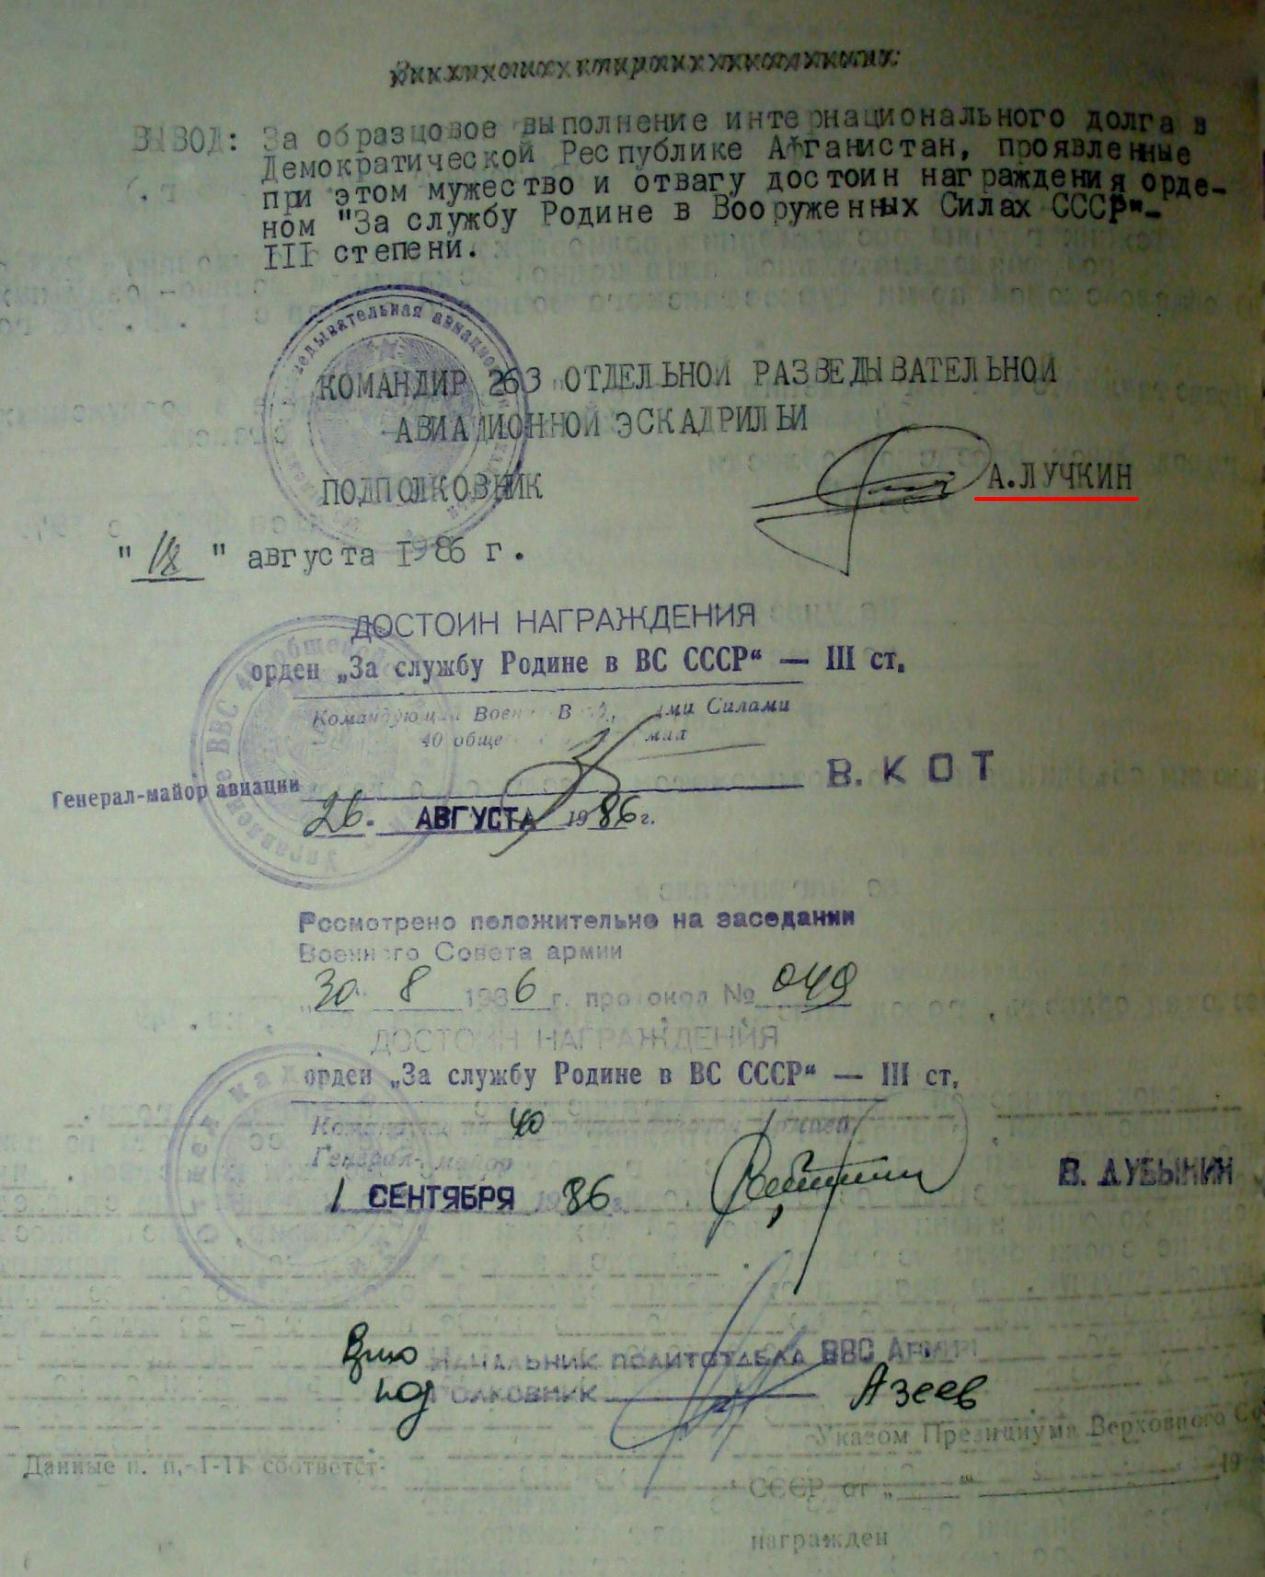 ВЫВОД: За образцовое выполнение интернационального долга в
Демократической Республике Афганистан, проявленные
при этом мужество и отвагу достоин награждения орде-
ном "За службу Родине в Вооруженных Силах СССР"-
III степени.
КОМАНДИР 263 ОТДЕЛЬНОЙ РАЗВЕДЫВАТЕЛЬНОЙ
АВИАЦИОННОЙ ЭСКАДРИЛЬИ
ПОДПОЛКОВНИК
А.ЛУЧКИН
" " августа 1986 г.
ДОСТОИН НАГРАЖДЕНИЯ
орден „За службу Родине в ВС СССР“ — III ст.
Командующий Военно-В ми Силами
40 обще
Генерал-майор авиации В. КОТ
26. АВГУСТА 1986 г.
Рссмотрено положительно на заседании
Военного Совета армии
„30" 8 1986 г. протокол № 049
ДОСТОИН НАГРАЖДЕНИЯ
орден „За службу Родине в ВС СССР“ — III ст.
40
Генерал-майор
1 СЕНТЯБРЯ 1986 В. ДУБЫНИН
Врио НАЧАЛЬНИК ПОЛИТОТДЕЛА ВВС АРМИИ
под ПОЛКОВНИК Азеев
Указом Президиума Верховного Со
Данные п. п. 1-11 соответст-
СССР от „ " 19
награжден